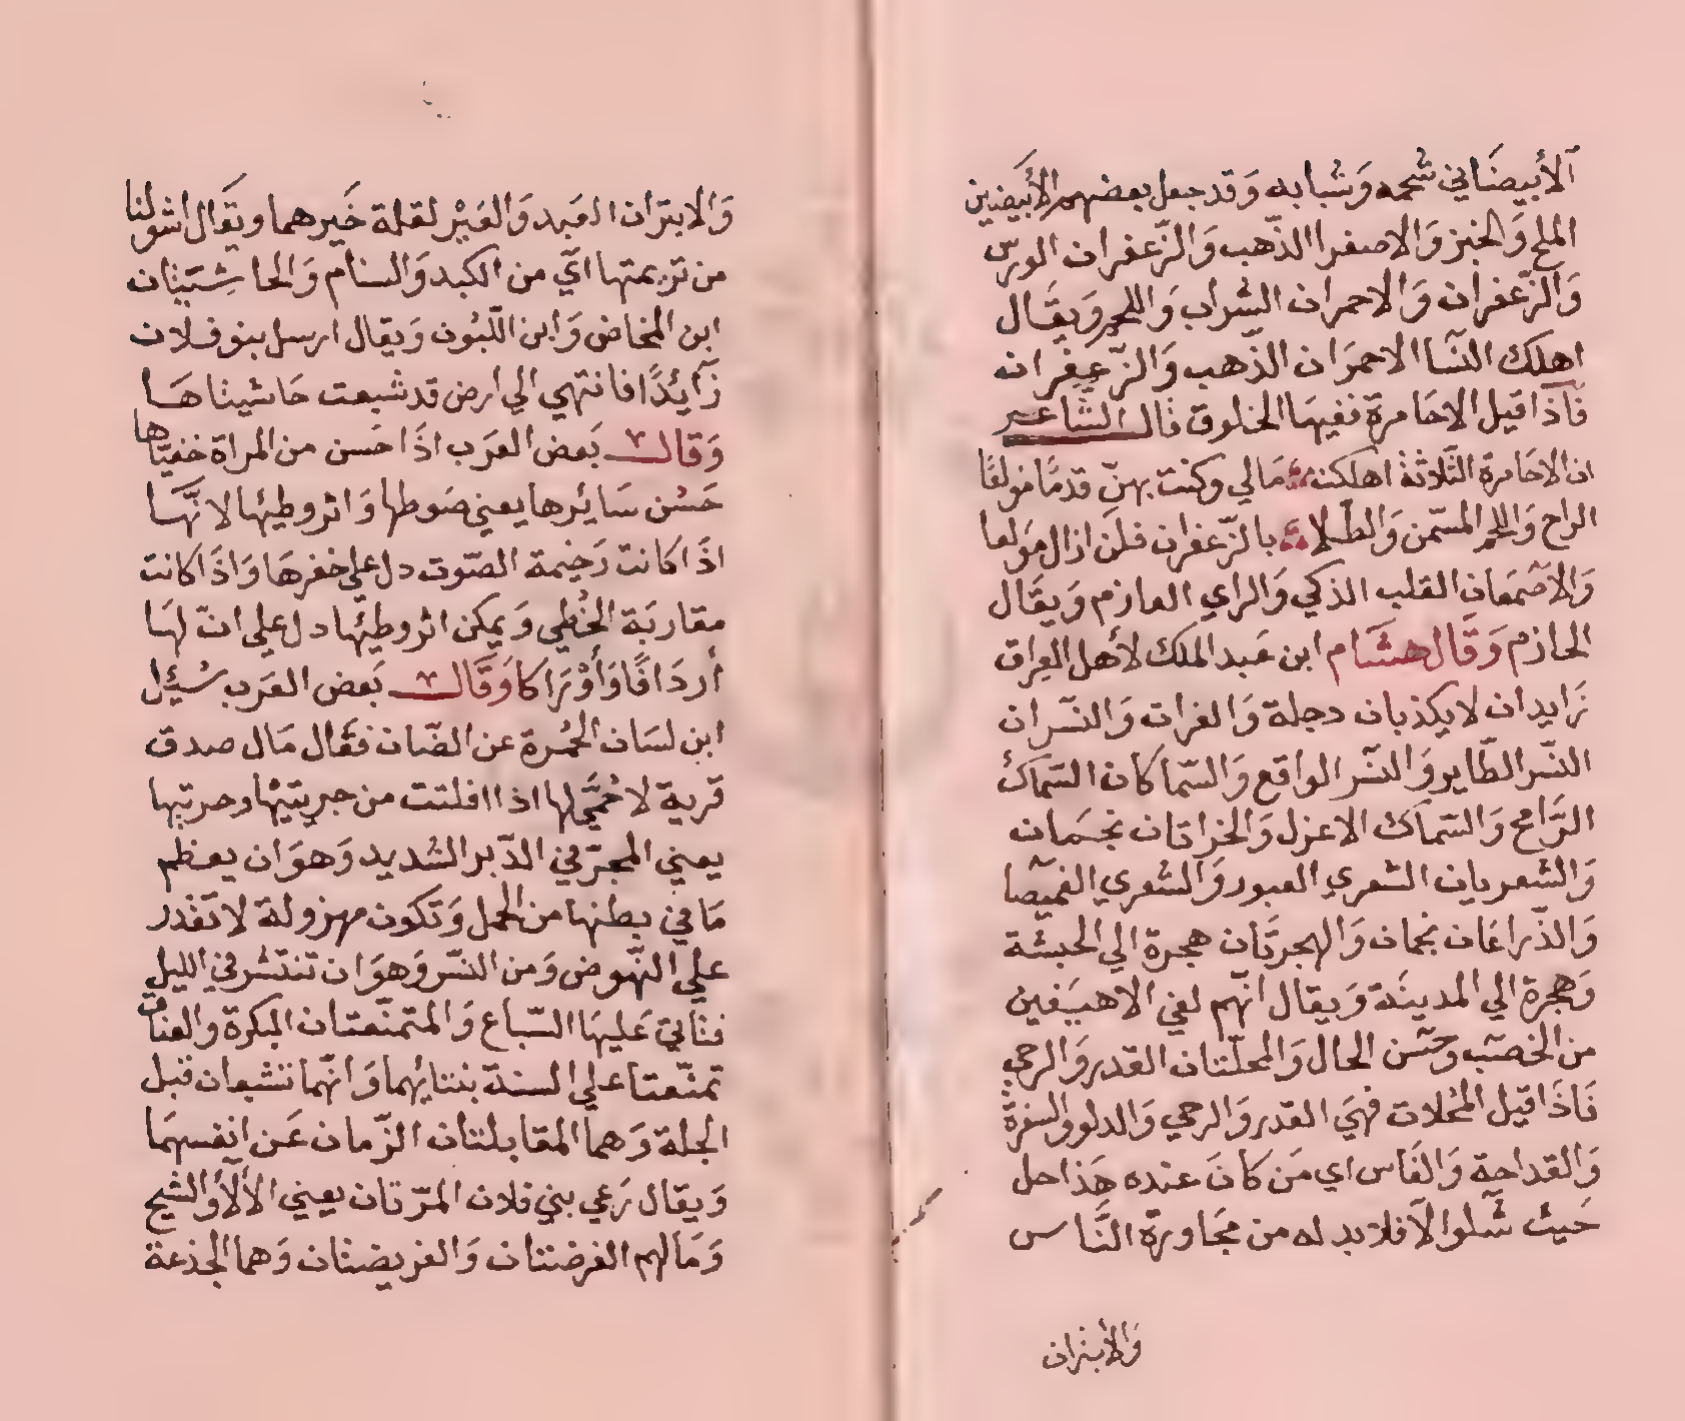 الأبيضاني شحمه وشبابه وقد جعل بعضهم الأبيضين
الملح والخبز والاصفرا الذهب والزعفران الورس
والزعفران والاحمران الشراب واللحم ويقال
اهلك النسا الاحمران الذهب والزعفران
فاذا قيل الاحامرة ففيها الخلوق قال الشاعر
ان الاحامرة الثلاثة اهلكت مالي وكنت بهن قدما مولعا
الراح واللحم المسمن والطلا بالزعفران فلن ازال مولعا
والاصمعان القلب الذكي والراي العازم ويقال
الحازم وقال هشام ابن عبد الملك لأهل العراق
زايدان لا يكذبان دجلة والفرات والنسران
النسر الطاير والنسر الواقع والسماكان السماك
الرامح والسماك الاعزل والخراتان نجمان
والشعريان الشعري العبور والشعري الغميصا
والذراعان نجمان والهجرتان هجرة الي الحبشة
وهجرة الي المدينة ويقال انهم لفي الاهيفين
من الخصب وحسن الحال والمحلتان القدر والرحي
فاذا قيل المحلات فهي القدر والرحي والدلو والسفرة
والقداحة والفاس اي من كان عنده هذا حل
حيث شا والا فلا بد له من مجاورة الناس
والأبتران
والابتران العبد والعير لقلة خيرهما ويقال اشو لنا
من تريمتها اي من الكبد والسنام والحاشيتان
ابن المخاض وابن اللبون ويقال ارسل بنو فلان
زائدا فانتهي الي ارض قد شبعت حاشيتاها
وقال بعض العرب اذا حسن من المراة خفياها
حسن سايرها يعني صوطها واثر وطئها لانها
اذا كانت رخيمة الصوت دل علي خفرها واذا كانت
مقاربة الخطي ويمكن اثر وطئها دل علي ان لها
أردافا وأوراكا وقال بعض العرب سئل
ابن لسان الحمرة عن الضان فقال مال صدق
قرية لا حمي لها اذا افلتت من جربتيها وحرتيها
يعني المجر في الدبر الشديد وهو ان يعظم
ما في بطنها من الحمل وتكون مهزولة لا تقدر
علي النهوض ومن النشر وهو ان تنتشر في الليل
فتاتي عليها السباع والمتمنعتان البكرة والعناق
تمنعتا علي السنة بنتائهما وانهما تشبعان قبل
الجلة وهما المقابلتان الزمان عن انفسهما
ويقال رعي بني فلان المرتان يعني الألأ والشيح
ومالهم الفرضتان والفريضتان وهما الجذعة